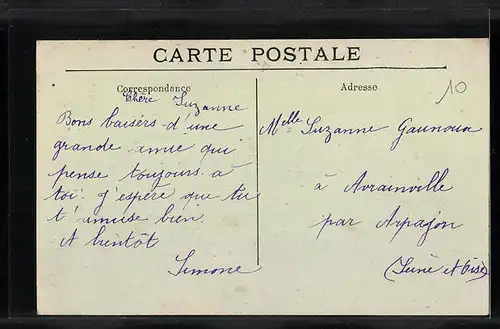 CARTE POSTALE
Correspondance
Chère Suzanne
Bons baisers d'une
grande amie qui
pense toujours à
toi. J'espère que tu
t'amuse bien.
A bientôt
Simone
Adresse
10
Melle Suzanne
à Avrainville
par Arpajon
(Seine et Oise)